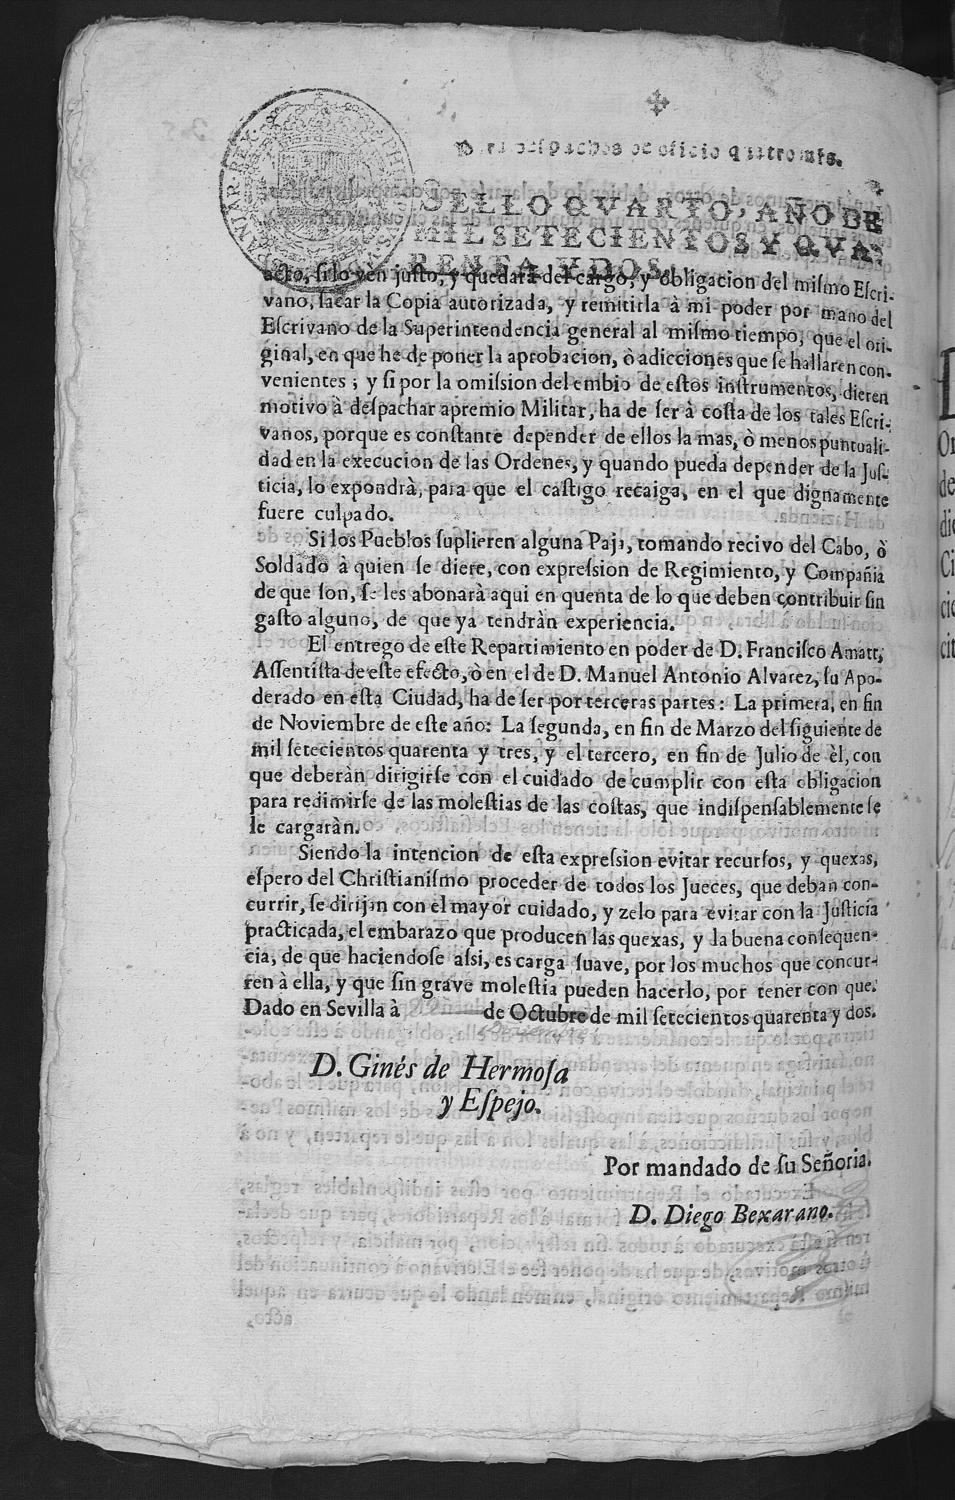 Para despachos de oficio quatro mrs.
SELLO QVARTO, AÑO DE
MIL SETECIENTOS Y QVA-
RENTA Y DOS.
acto, si lo ven justo, y quedarà del cargo, y obligacion del mismo Escri-
vano, sacar la Copia autorizada, y remitirla à mi poder por mano del
Escrivano de la Superintendencia general al mismo tiempo, que el ori-
ginal, en que he de poner la aprobacion, ò adicciones que se hallaren con-
venientes; y si por la omission del embio de estos instrumentos, dieren
motivo à despachar apremio Militar, ha de ser à costa de los tales Escri-
vanos, porque es constante depender de ellos la mas, ò menos puntuali-
dad en la execucion de las Ordenes, y quando pueda depender de la Jus-
ticia, lo expondrà, para que el castigo recaiga, en el que dignamente
fuere culpado.
Si los Pueblos suplieren alguna Paja, tomando recivo del Cabo, ò
Soldado à quien se diere, con expression de Regimiento, y Compañia
de que son, se les abonarà aqui en quenta de lo que deben contribuir sin
gasto alguno, de que ya tendràn experiencia.
El entrego de este Repartimiento en poder de D. Francisco Amatt,
Assentista de este efecto, ò en el de D. Manuel Antonio Alvarez, su Apo-
derado en esta Ciudad, ha de ser por terceras partes: La primera, en fin
de Noviembre de este año: La segunda, en fin de Marzo del siguiente de
mil setecientos quarenta y tres, y el tercero, en fin de Julio de èl, con
que deberàn dirigirse con el cuidado de cumplir con esta obligacion
para redimirse de las molestias de las costas, que indispensablemente se
le cargaràn.
Siendo la intencion de esta expression evitar recursos, y quexas,
espero del Christianismo proceder de todos los Jueces, que deban con-
currir, se dirijan con el mayor cuidado, y zelo para evitar con la Justicia
practicada, el embarazo que producen las quexas, y la buena consequen-
cia, de que haciendose assi, es carga suave, por los muchos que concur-
ren à ella, y que sin grave molestia pueden hacerlo, por tener con que.
Dado en Sevilla à de Octubre de mil setecientos quarenta y dos.
D. Ginés de Hermosa
y Espejo.
Por mandado de su Señoria.
D. Diego Bexarano.